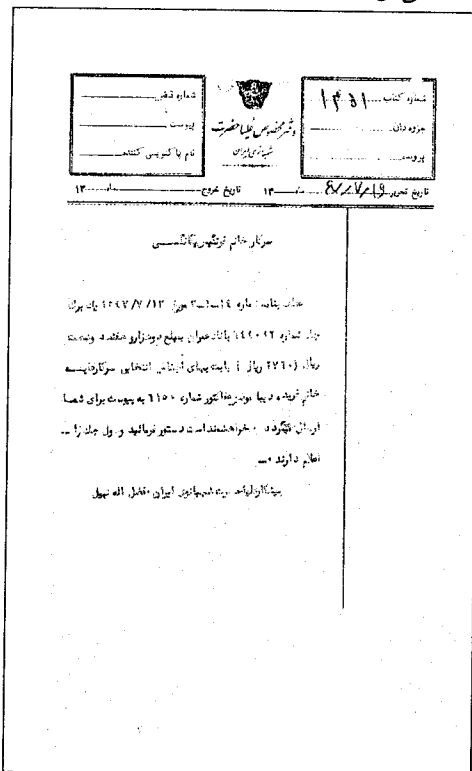 شماره کتاب ۱۴۵۱
جزوه دان
پرونده
دفتر مخصوص علیاحضرت
شهبانوی ایران
شماره قبلی
پیوست
نام پاکنویس کننده
تاریخ تحریر ۴۸/۷/۱۶ ماه ۱۳ تاریخ خروج ماه ۱۳
سرکار خانم
عطف بنامه شماره مورخ ۱۳۴۷/۷/۱۳ یک برگ
چک شماره ۱۴۹۰۹۲ بانک عمران بمبلغ دوهزارو هفتصد وشصت
ریال (۲۷۶۰ ریال) بابت بهای اجناس انتخابی سرکارعلیه
خانم فریده دیبا موضوع فاکتور شماره ۶۱۵۰ به پیوست برای شما
ارسال میگردد خواهشمنداست دستور فرمائید وصول چک را
اعلام دارند
شهبانوی ایران فضل اله نبیل